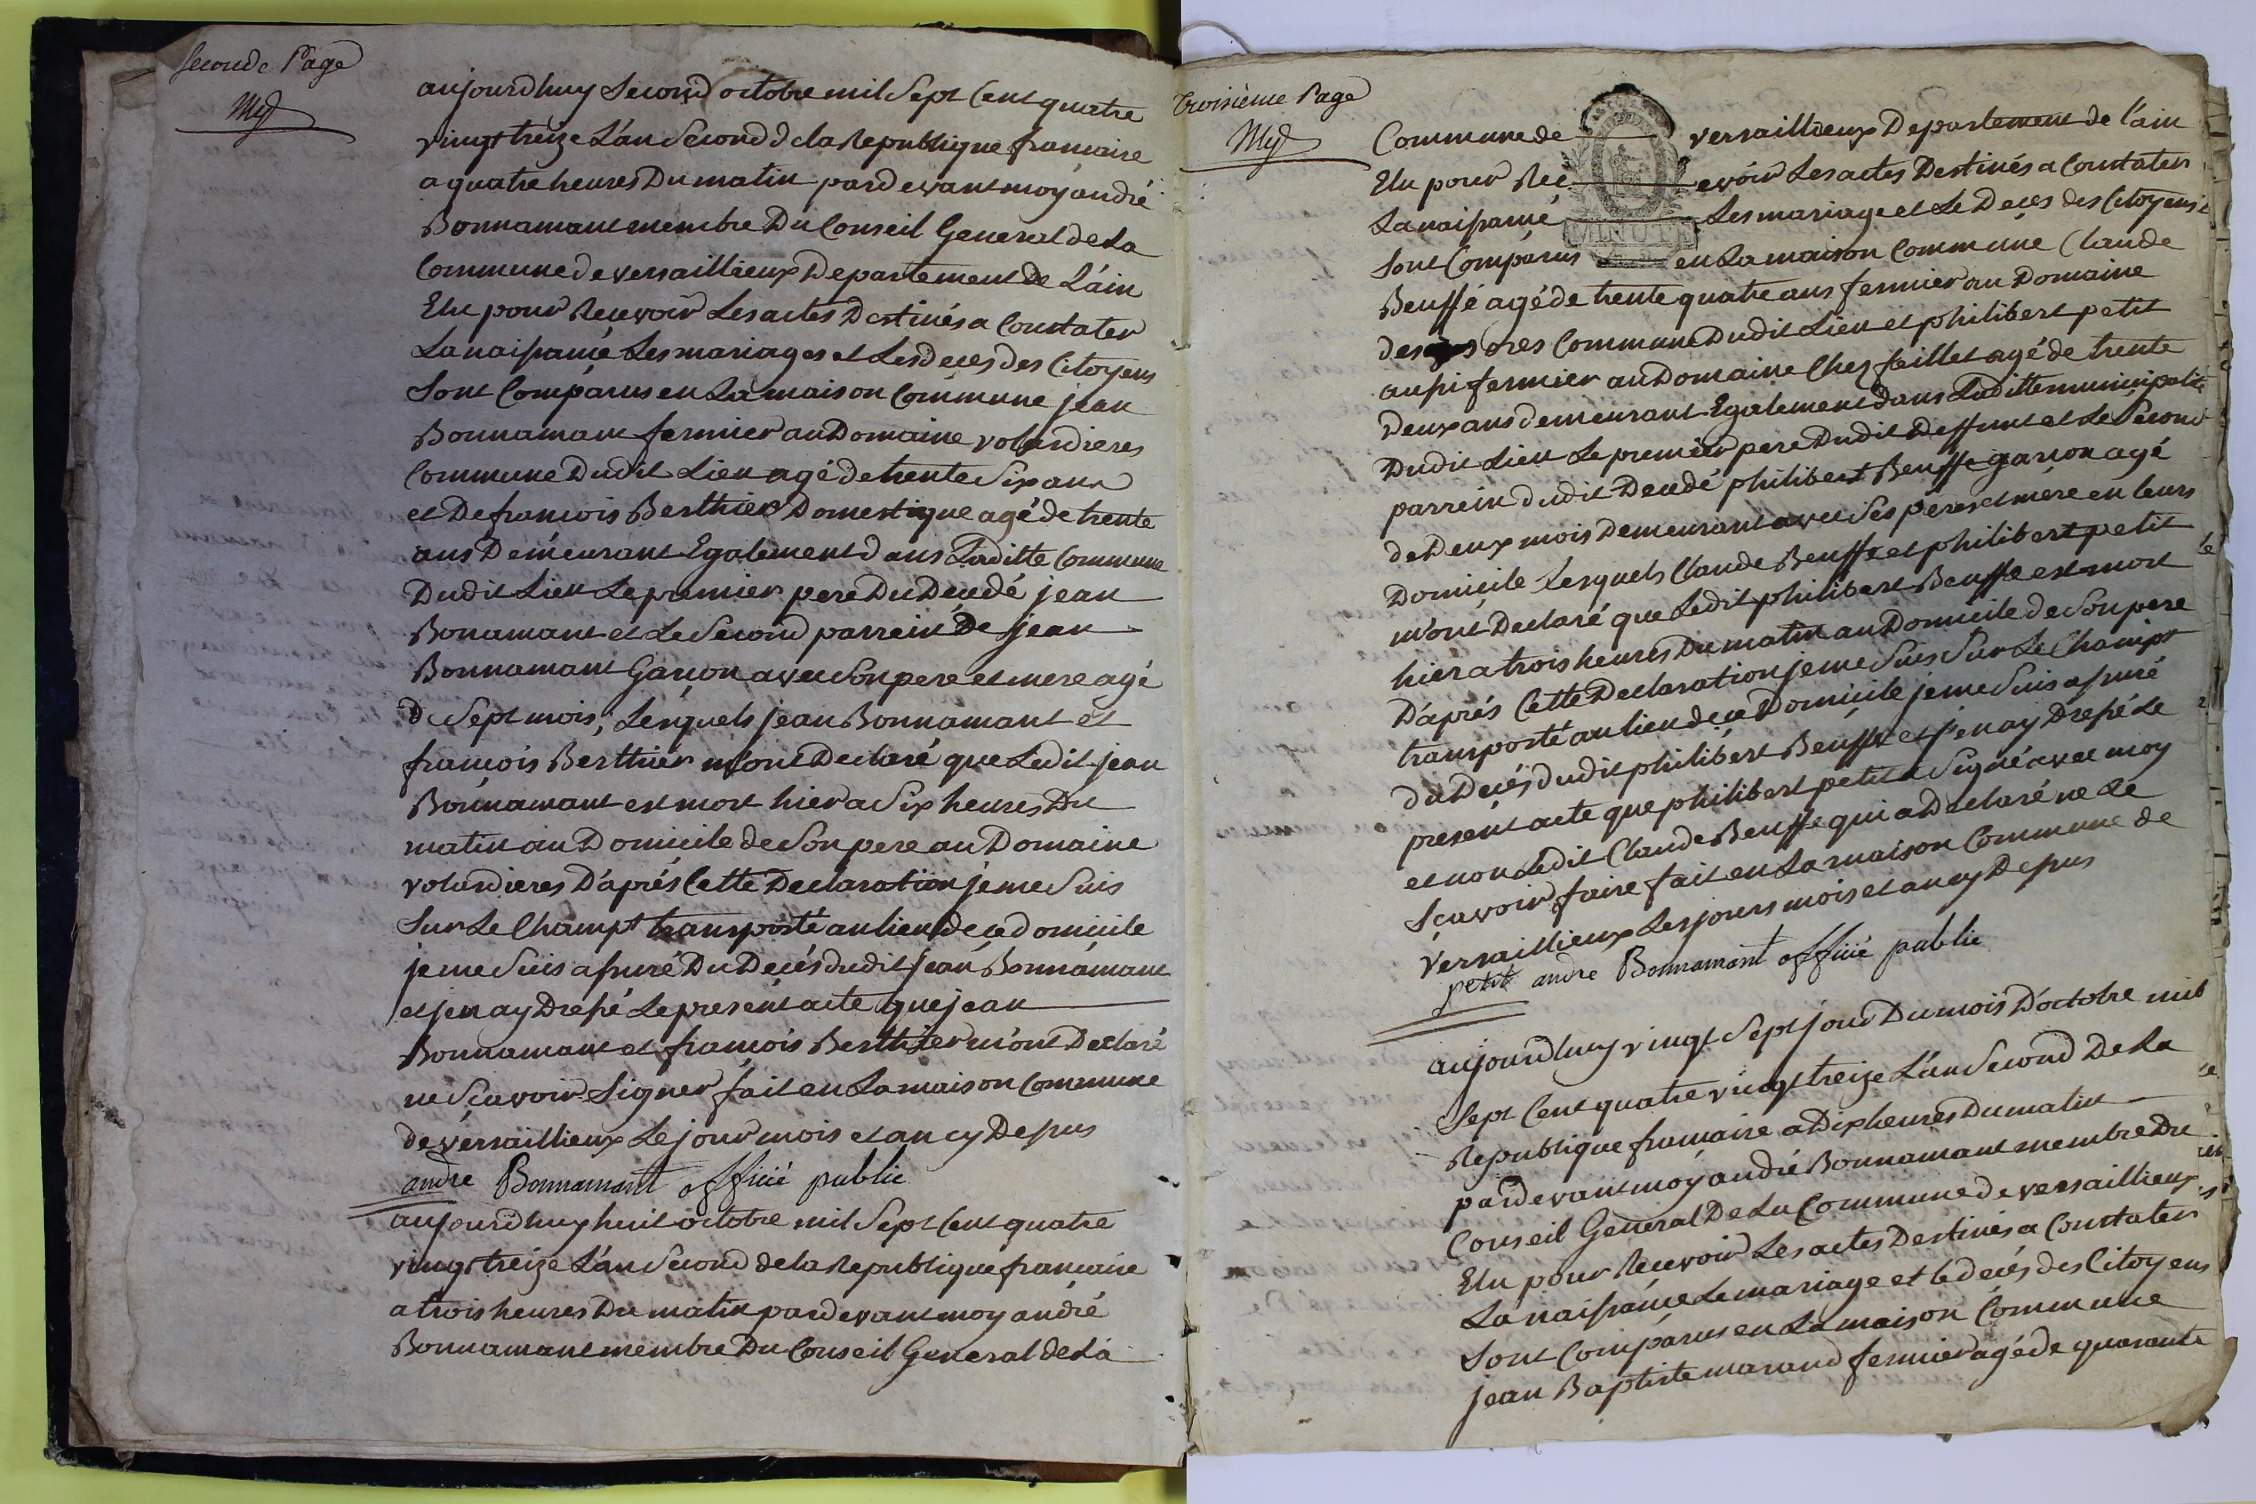 Seconde Page
aujourdhuy Second octobre mil Sept Cent quatre
vingt treize L'an Second de la Republique francaise
a quatre heures Du matin pardevant moy andré
Bonnamant membre Du Conseil General de La
Commune de versaillieux Departement De L'ain
Elu pour Recevoir Les actes Destinés a Constater
La naissance Les mariages et Les deces des Citoyens
Sont Comparus en La maison Commune jean
Bonnamant fermier au Domaine volardieres
Commune Dudit Lieu agé de trente Six ans
et De francois Berthier Domestique agé de trente
ans Demeurant Egalement dans Laditte Commune
Dudit Lieu Le premier pere Du Decedé jean
Bonamant et Le Second parrein De jean
Bonnamant Garcon avec Son pere et mere agé
de Sept mois, Lesquels jean Bonnamant et
francois Berthier m'ont Declaré que Ledit jean
Bonnamant est mort hier a Six heures Du
matin au Domicile de Son pere au Domaine
volardieres D'aprés Cette Declaration je me Suis
Sur Le Champt transporté au lieu de ce domicile
je me Suis assuré Du Decés dudit jean Bonnamant
et jen ay Dressé Le present acte que jean
Bonnamant et francois Berthier m'ont Declaré
ne Scavoir Signer fait en La maison Commune
de versaillieux Le jour mois et an cy Depus
andre Bonnamant officié public
aujourdhuy huit octobre mil Sept Cent quatre
vingt treize L'an Second de la Republique francaise
a trois heures Du matin pardevant moy andré
Bonnamant membre Du Conseil General de La
Troisième Page
Commune de versaillieux Departement de l'ain
Elu pour Recevoir Les actes Destinés a Constater
La naissance Les mariage et Le Deces des Citoyens
MINUTE
Sont Comparus en La maison Commune Claude
Beuffe agé de trente quatre ans fermier au Domaine
des ores Commune Dudit Lieu et philibert petit
aussi fermier au Domaine Chez faillet agé de trente
Deux ans demeurant Egalement dans Laditte municipalité
Dudit Lieu Le premier pere Dudit Deffunt et Le Second
parrein dudit Decedé philibert Beuffe garcon agé
de Deux mois Demeurant avec Ses péres et mére en leurs
Domicile Lesquels Claude Beuffe et philibert petit
m'ont Declaré que Ledit philibert Beuffe est mort
hier a trois heures Du matin au Domicile de Son pere
D'aprés Cette Declaration je me Suis Sur Le Champt
transporté au lieu de ce Domicile je me Suis assuré
du Decés dudit philibert Beuffe et j'en ay Dressé Le
present acte que philibert petit a Signé avec moy
et non Ledit Claude Beuffe qui a Declaré ne Le
Scavoir faire fait en La maison Commune de
versaillieux Les jours mois et an cy Depus
petit andre Bonnamant officié public
aujourdhuy vingt Sept jour Du mois D'octobre mil
Sept Cent quatre vingt treize L'an Second De La
Republique francaise a Dix heures Du matin
pardevant moy andré Bonnamant membre Du
Conseil General De La Commune de versaillieux
Elu pour Recevoir Les actes Destinés a Constater
La naissance Le mariage et le decés des Citoyens
Sont Comparus en La maison Commune
jean Baptiste marand fermier agé de quarante